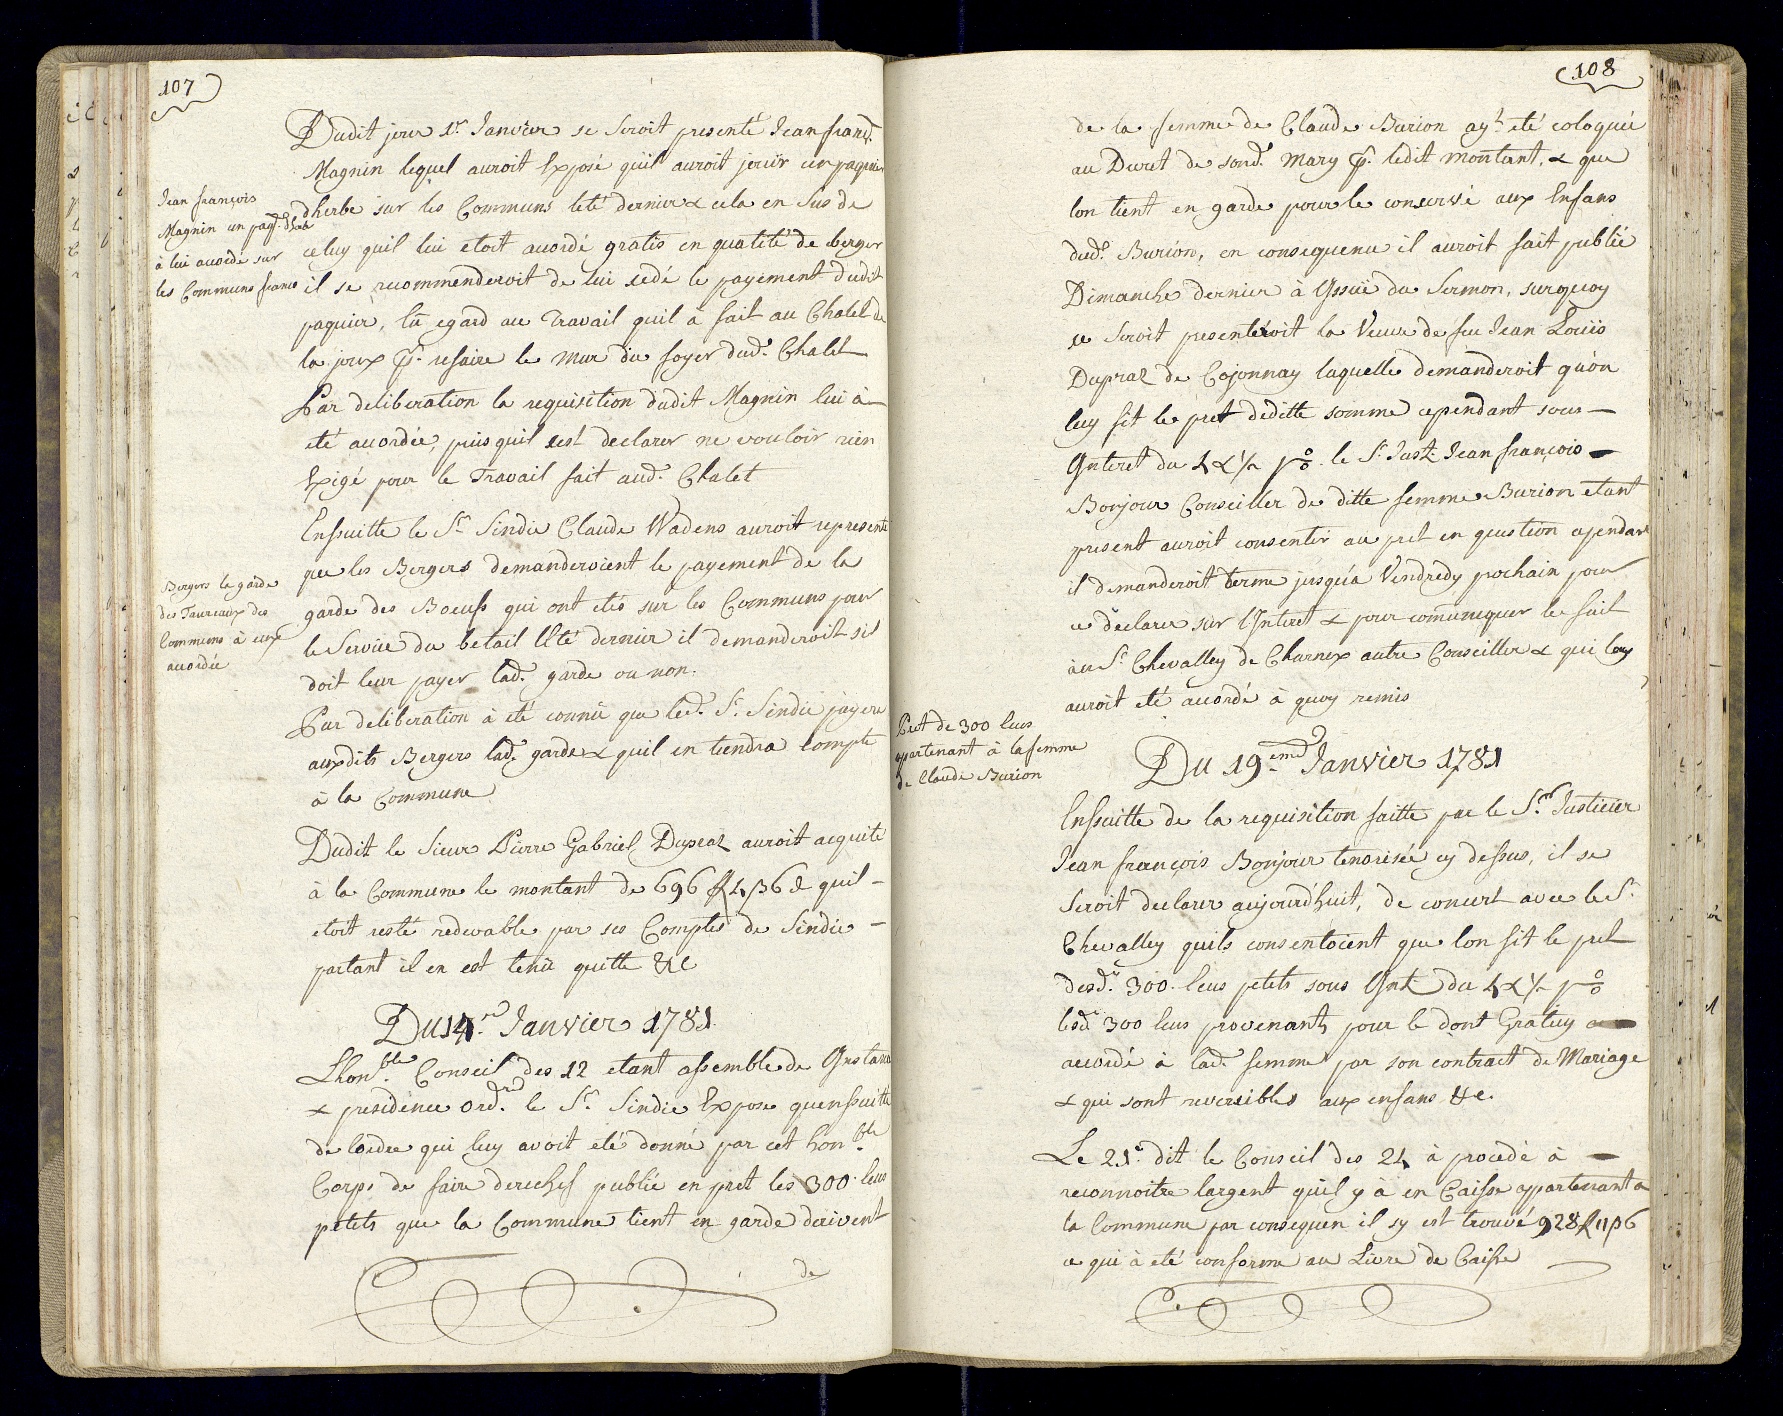 107
Dudit jour 1r. Janvier se seroit presenté Jean franç.
Magnin lequel auroit Exposé quil auroit jouïr un paquier
dherbe sur les Communs lété dernier & cela en sus de
celuy quil lui etoit acordé gratis en qualité de berger
il se recommenderoit de lui cedé le payement dudit
paquier, Eü egard au Travail quil à fait au Chalet de
la joux pr. refaire le mur du foyer dud. Chalet
Par deliberation la requisition dudit Magnin lui à
été acordée, puis quil sest declarer ne vouloir rien
Exigé pour le Travail fait aud. Chalet
Jean françois
Magnin un paqr. dherbe
à lui acordé sur
les Communs franco
Ensuitte le Sr. Sindic Claude Wadens auroit representé
que les Bergers demanderoient le payement de la
garde des Boeufs qui ont étés sur les Communs pour
le Service du betail lété dernier il demanderoit sil
doit leur payer lad. garde ou non.
Par deliberation à eté connü que led. Sr. Sindic payera
auxdits Bergers lad. garde & quil en tiendra compte
à la Commune
Bergers le garde
des Taureaux des
Communs à eux
acordée
Dudit le Sieur Pierre Gabriel Dupraz auroit acquité
à la Commune le montant de 696 ff 4 ß 6 d quil
etoit resté redevable par ses Comptes de Sindic
partant il en est tenü quitte &c
Du 14.me Janvier 1781.
Lhon.ble Conseil des 12 etant assemble de Instance
& presidence ord.re le Sr. Sindic Expose quensuitte
de lordre qui luy avoit eté donné par cet hon.ble
Corps de faire derechef publié en pret les 300 Ecus
petits que la Commune tient en garde derivent
de
108
de la femme de Claude Burion ayt. eté coloquée
au Decret de sond. mary pr. ledit montant, & que
lon tient en garde pour le conservé aux Enfans
dud. Burion, en consequence il auroit fait publié
Dimanche dernier à lissuë du Sermon, surquoy
ce seroit presenteroit la Veuve de feu Jean Louïs
Dupraz de Cojonnay laquelle demanderoit quon
luy fit le pret deditte somme cependant sous
Interet du 4 & ½ po/o. le Sr. Just. Jean françois
Bonjour Conseiller de ditte femme Burion etant
present auroit consentir au pret en question cependant
il demanderoit terme jusquà Vendredy prochain pour
ce declarer sur lInteret & pour communiquer le fait
au Sr. Chevalley de Charnex autre Conseiller & qui luy
auroit eté acordé à quoy remis
Du 19eme. Janvier 1781
Pret de 300 Ecus
apartenant à la femme
de Claude Burion
Ensuitte de la requisition faitte par le Sr. Justicier
Jean françois Bonjour tenorisée cy dessus, il se
seroit declarer aujourdhuit, de concert avec le Sr.
Chevalley quils consentoient que lon fit le pret
desd. 300 Ecus petits sous Int. du 4 & ½ po/o
lesd. 300 Ecus provenants pour le dont Gratuy
accordé à lad. femme par son contract de Mariage
& qui sont reversibles aux enfans &c.
Le 21e. dit le Conseil des 24 à procedé à
reconnoitre largent quil y à en Caisse appartenant a
la Commune par consequen il sy est trouvé 928 ff 11 ß 6
ce qui à eté conforme au Livre de Caisse